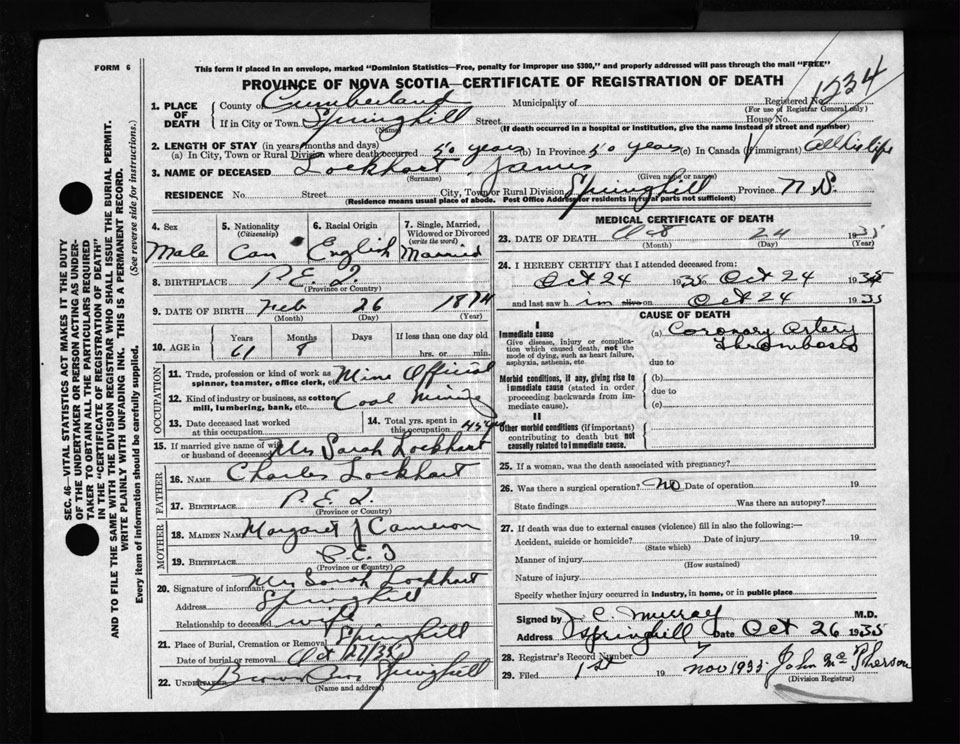 FORM 6
This form if placed in an envelope, marked "Dominion Statistics—Free, penalty for improper use $300," and properly addressed will pass through the mail "FREE"
PROVINCE OF NOVA SCOTIA—CERTIFICATE OF REGISTRATION OF DEATH
1234
1. PLACE OF DEATH
County of Cumberland Municipality of Registered No.
(For use of Registrar General only)
If in City or Town Springhill Street House No.
(Name) (If death occurred in a hospital or institution, give the name instead of street and number)
2. LENGTH OF STAY (in years, months and days)
(a) In City, Town or Rural Division where death occurred 50 years (b) In Province 50 years (c) In Canada (if immigrant) all his life
3. NAME OF DECEASED Lockhart James
(Surname) (Given name or names)
RESIDENCE No. Street City, Town or Rural Division Springhill Province N.S.
(Residence means usual place of abode. Post Office Address for residents in rural parts not sufficient)
4. Sex
Male
5. Nationality
(Citizenship)
Can
6. Racial Origin
English
7. Single, Married, Widowed or Divorced
(write the word)
Married
8. BIRTHPLACE P.E.I.
(Province or Country)
9. DATE OF BIRTH Feb 26 1874
(Month) (Day) (Year)
10. AGE in
Years Months Days If less than one day old
61 8 hrs. or min.
OCCUPATION
11. Trade, profession or kind of work as spinner, teamster, office clerk, etc. Mine Official
12. Kind of industry or business, as cotton mill, lumbering, bank, etc. Coal Mining
13. Date deceased last worked at this occupation
14. Total yrs. spent in this occupation
15. If married give name of wife or husband of deceased Mrs Sarah Lockhart
FATHER
16. NAME Charles Lockhart
17. BIRTHPLACE P.E.I.
(Province or Country)
MOTHER
18. MAIDEN NAME Margaret J Cameron
19. BIRTHPLACE P.E.I
(Province or Country)
20. Signature of informant Mrs Sarah Lockhart
Address Springhill
Relationship to deceased wife
21. Place of Burial, Cremation or Removal Springhill
Date of burial or removal Oct 27/35
22. UNDERTAKER Brown Bros Springhill
(Name and address)
MEDICAL CERTIFICATE OF DEATH
23. DATE OF DEATH Oct 24 1935
(Month) (Day) (Year)
24. I HEREBY CERTIFY that I attended deceased from:
Oct 24 1935 to Oct 24 1935
and last saw h im alive on Oct 24 1935
CAUSE OF DEATH
I
Immediate cause
Give disease, injury or complication which caused death, not the mode of dying, such as heart failure, asphyxia, asthenia, etc.
(a) Coronary Artery Thrombosis
due to
Morbid conditions, if any, giving rise to immediate cause (stated in order proceeding backwards from immediate cause).
(b)
due to
(c)
II
Other morbid conditions (if important) contributing to death but not causally related to immediate cause.
25. If a woman, was the death associated with pregnancy?
26. Was there a surgical operation? No Date of operation 19
State findings Was there an autopsy?
27. If death was due to external causes (violence) fill in also the following:—
Accident, suicide or homicide? Date of injury 19
(State which)
Manner of injury
(How sustained)
Nature of injury
Specify whether injury occurred in industry, in home, or in public place
Signed by J. C. Murray M.D.
Address Springhill Date Oct 26 1935
28. Registrar's Record Number 7
29. Filed 1st 19 Nov 1935 John McPherson
(Division Registrar)
SEC. 46—VITAL STATISTICS ACT MAKES IT THE DUTY
OF THE UNDERTAKER OR PERSON ACTING AS UNDER-
TAKER TO OBTAIN ALL THE PARTICULARS REQUIRED
IN THE "CERTIFICATE OF REGISTRATION OF DEATH"
AND TO FILE THE SAME WITH THE DIVISION REGISTRAR WHO SHALL ISSUE THE BURIAL PERMIT.
WRITE PLAINLY WITH UNFADING INK. THIS IS A PERMANENT RECORD.
Every item of information should be carefully supplied. (See reverse side for instructions.)